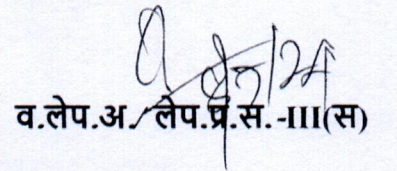 व.लेप.अ./ लेप.प्र.स.-III(स)